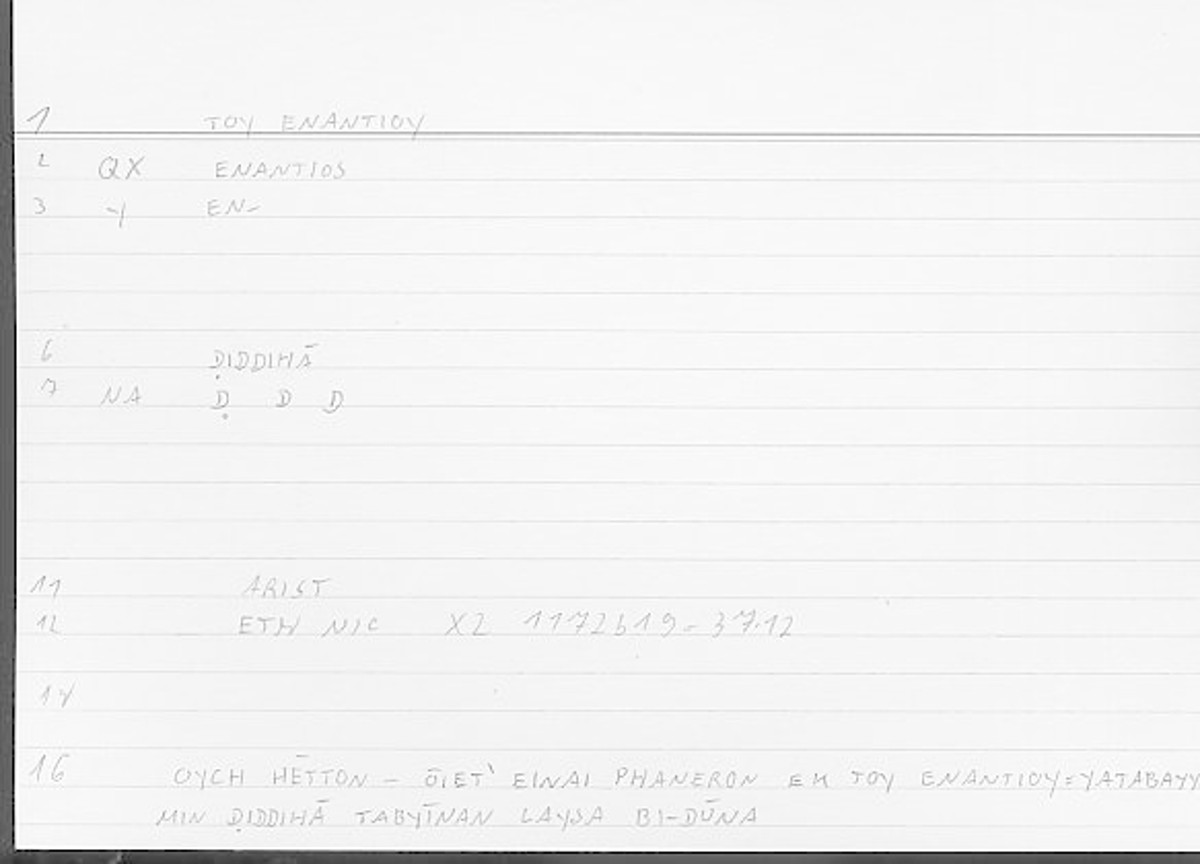 1 TOY ENANTIOY
2 QX ENANTIOS
3 -Y EN-
6 ḌIDDIHĀ
7 NA Ḍ D D
11 ARIST
12 ETH NIC X2 1172b19 = 37.12
14
16 OYCH HĒTTON – ŌIET' EINAI PHANERON EK TOY ENANTIOY = YATABAYY
MIN ḌIDDIHĀ TABYĪNAN LAYSA BI-DŪNA